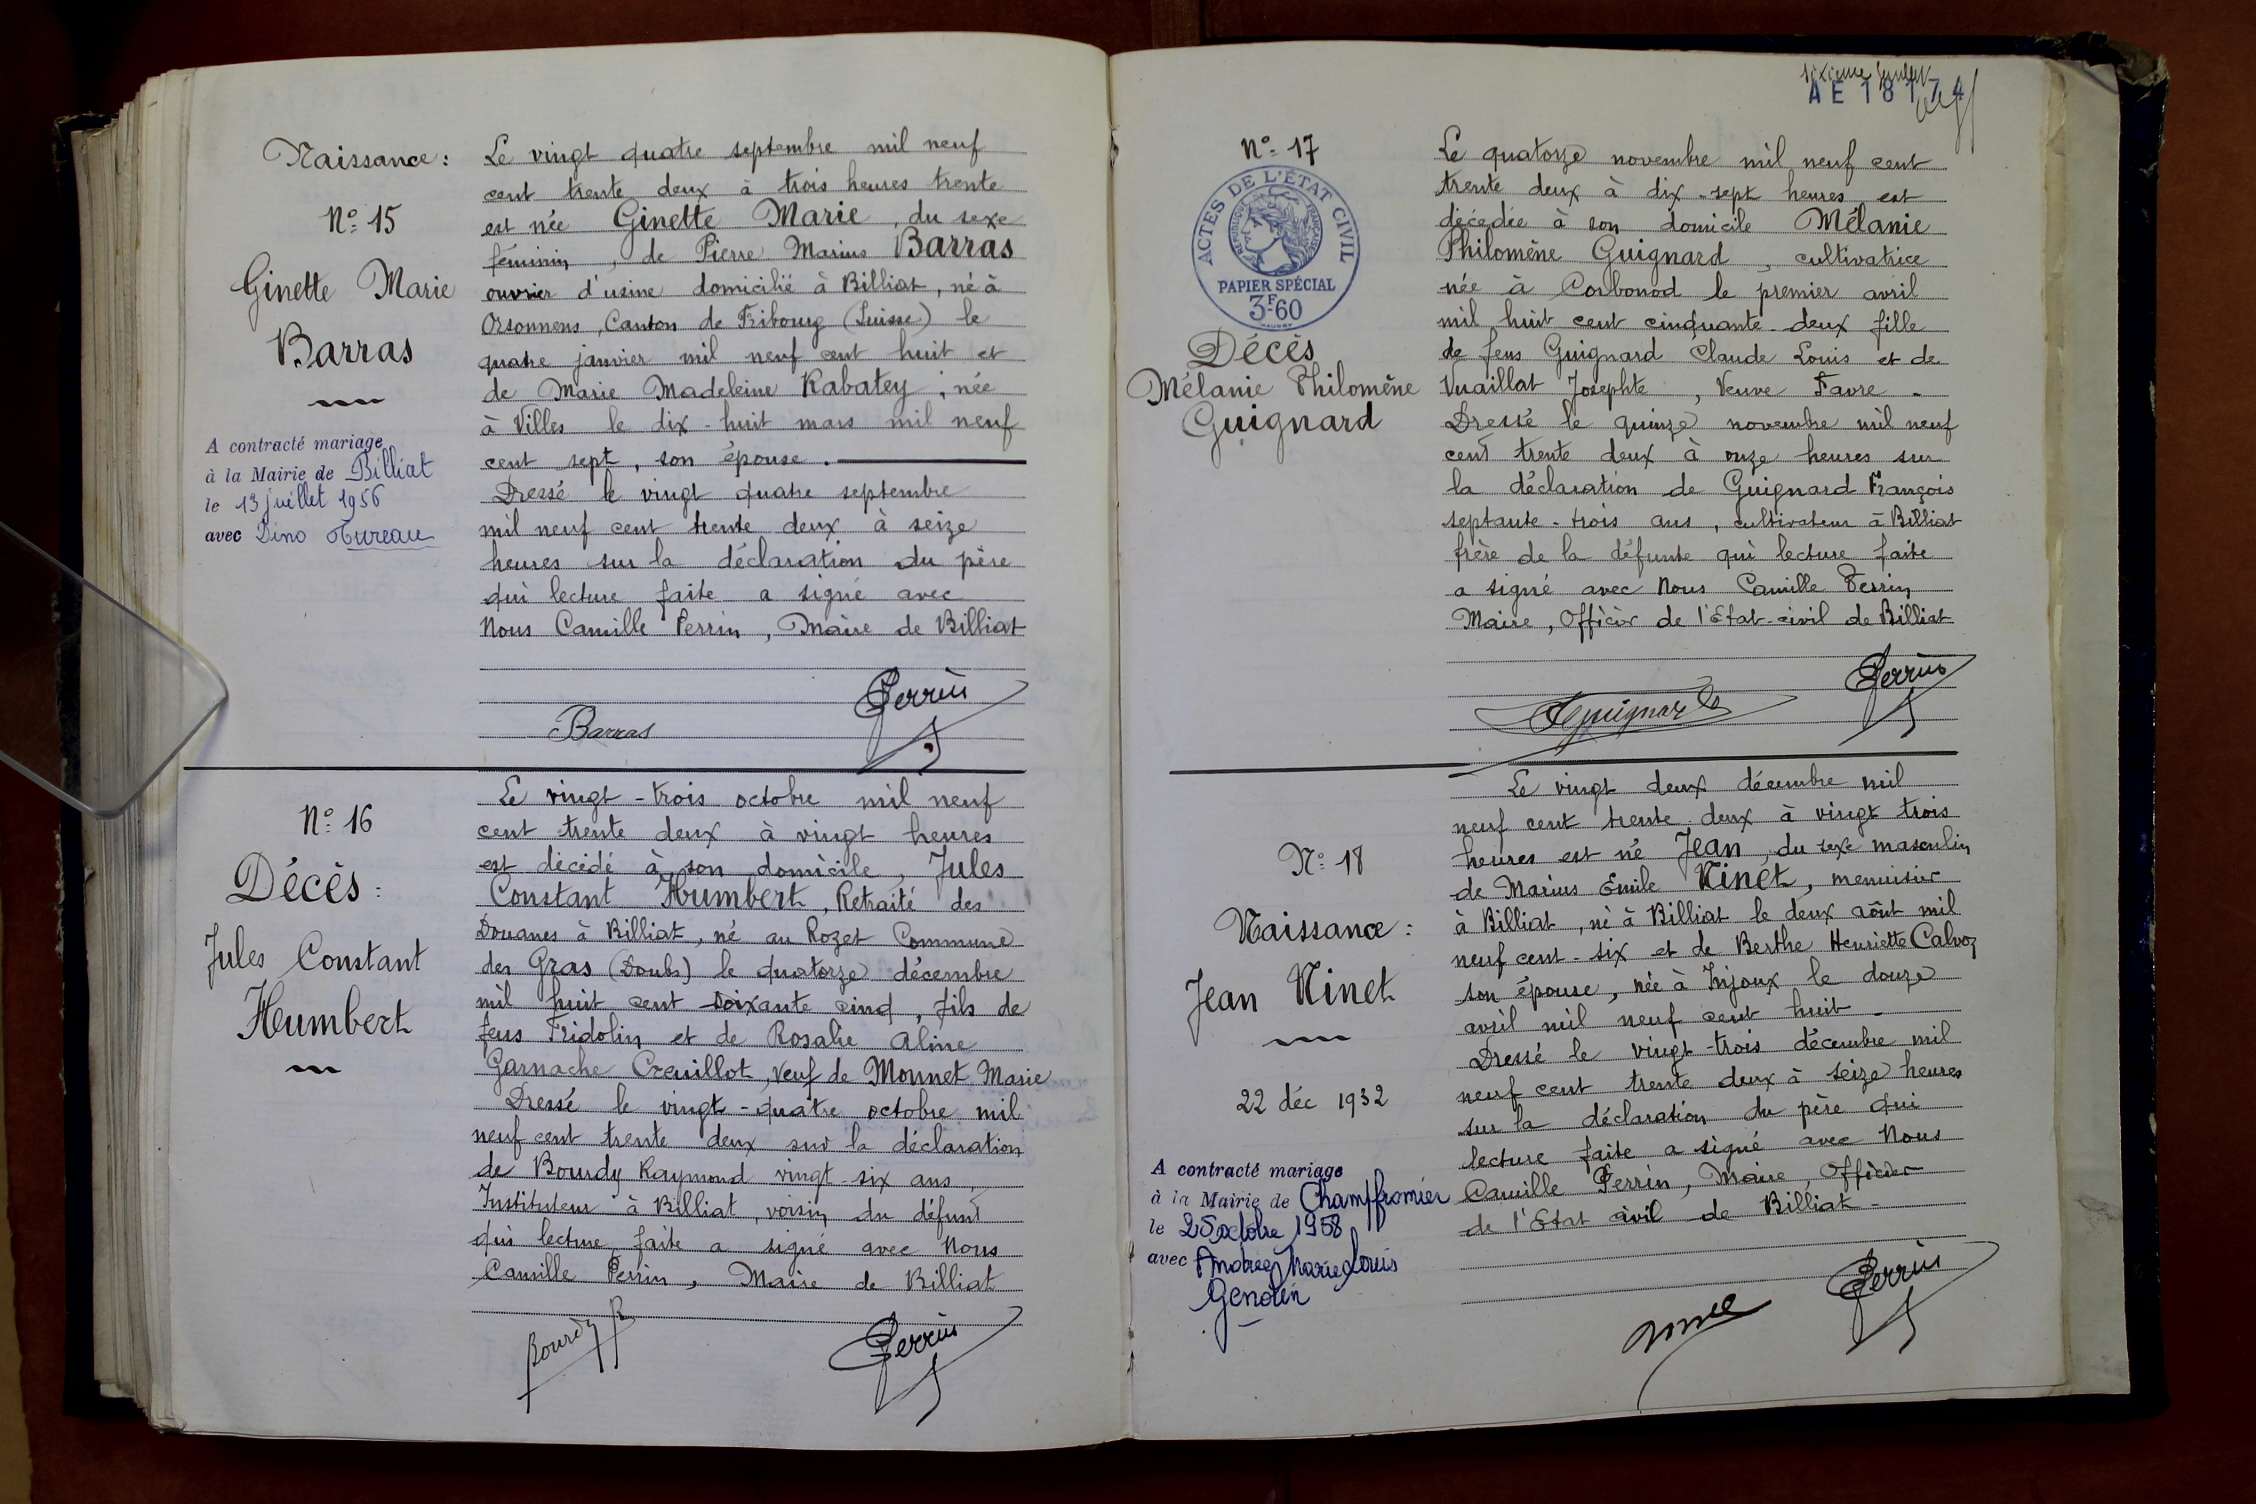 Naissance :
N° 15
Ginette Marie
Barras
A contracté mariage
à la Mairie de Billiat
le 13 juillet 1956
avec Dino Tureau
Le vingt quatre septembre mil neuf
cent trente deux à trois heures trente
est née Ginette Marie, du sexe
féminin, de Pierre Marius Barras
ouvrier d'usine domicilié à Billiat, né à
Orsonnens, Canton de Fribourg (Suisse) le
quatre janvier mil neuf cent huit et
de Marie Madeleine Rabatey, née
à Villes le dix-huit mars mil neuf
cent sept, son épouse.
Dressé le vingt quatre septembre
mil neuf cent trente deux à seize
heures sur la déclaration du père
qui lecture faite a signé avec
Nous Camille Perrin, Maire de Billiat
Barras
Perrin
N° 16
Décès :
Jules Constant
Humbert
Le vingt-trois octobre mil neuf
cent trente deux à vingt heures
est décédé à son domicile, Jules
Constant Humbert, Retraité des
Douanes à Billiat, né au Rozet Commune
des Gras (Doubs) le quatorze décembre
mil huit cent soixante cinq, fils de
feus Fridolin et de Rosalie Aline
Garnache Creuillot, veuf de Monnet Marie
Dressé le vingt-quatre octobre mil
neuf cent trente deux sur la déclaration
de Bourdy Raymond vingt-six ans,
Instituteur à Billiat, voisin du défunt
qui lecture faite a signé avec Nous
Camille Perrin, Maire de Billiat
Bourdy R
Perrin
AE 18174
N° 17
ACTES DE L'ÉTAT CIVIL
RÉPUBLIQUE FRANÇAISE
PAPIER SPÉCIAL
3F60
Décès
Mélanie Philomène
Guignard
Le quatorze novembre mil neuf cent
trente deux à dix-sept heures est
décédée à son domicile Mélanie
Philomène Guignard, cultivatrice
née à Corbonod le premier avril
mil huit cent cinquante-deux fille
de feus Guignard Claude Louis et de
Vuaillat Josephte, Veuve Favre -
Dressé le quinze novembre mil neuf
cent trente deux à onze heures sur
la déclaration de Guignard François
septante-trois ans, cultivateur à Billiat
frère de la défunte qui lecture faite
a signé avec Nous Camille Perrin
Maire, Officier de l'Etat-civil de Billiat
Guignard
Perrin
N° 18
Naissance :
Jean Ninet
22 déc 1932
A contracté mariage
à la Mairie de Champfromier
le 25 octobre 1958
avec Andrée Marie Louis
Genolin
Le vingt deux décembre mil
neuf cent trente deux à vingt trois
heures est né Jean, du sexe masculin
de Marius Emile Ninet, menuisier
à Billiat, né à Billiat le deux août mil
neuf cent-six et de Berthe Henriette Calvoz
son épouse, née à Injoux le douze
avril mil neuf cent huit -
Dressé le vingt-trois décembre mil
neuf cent trente deux à seize heures
sur la déclaration du père qui
lecture faite a signé avec Nous
Camille Perrin, Maire, Officier
de l'Etat civil de Billiat -
Perrin